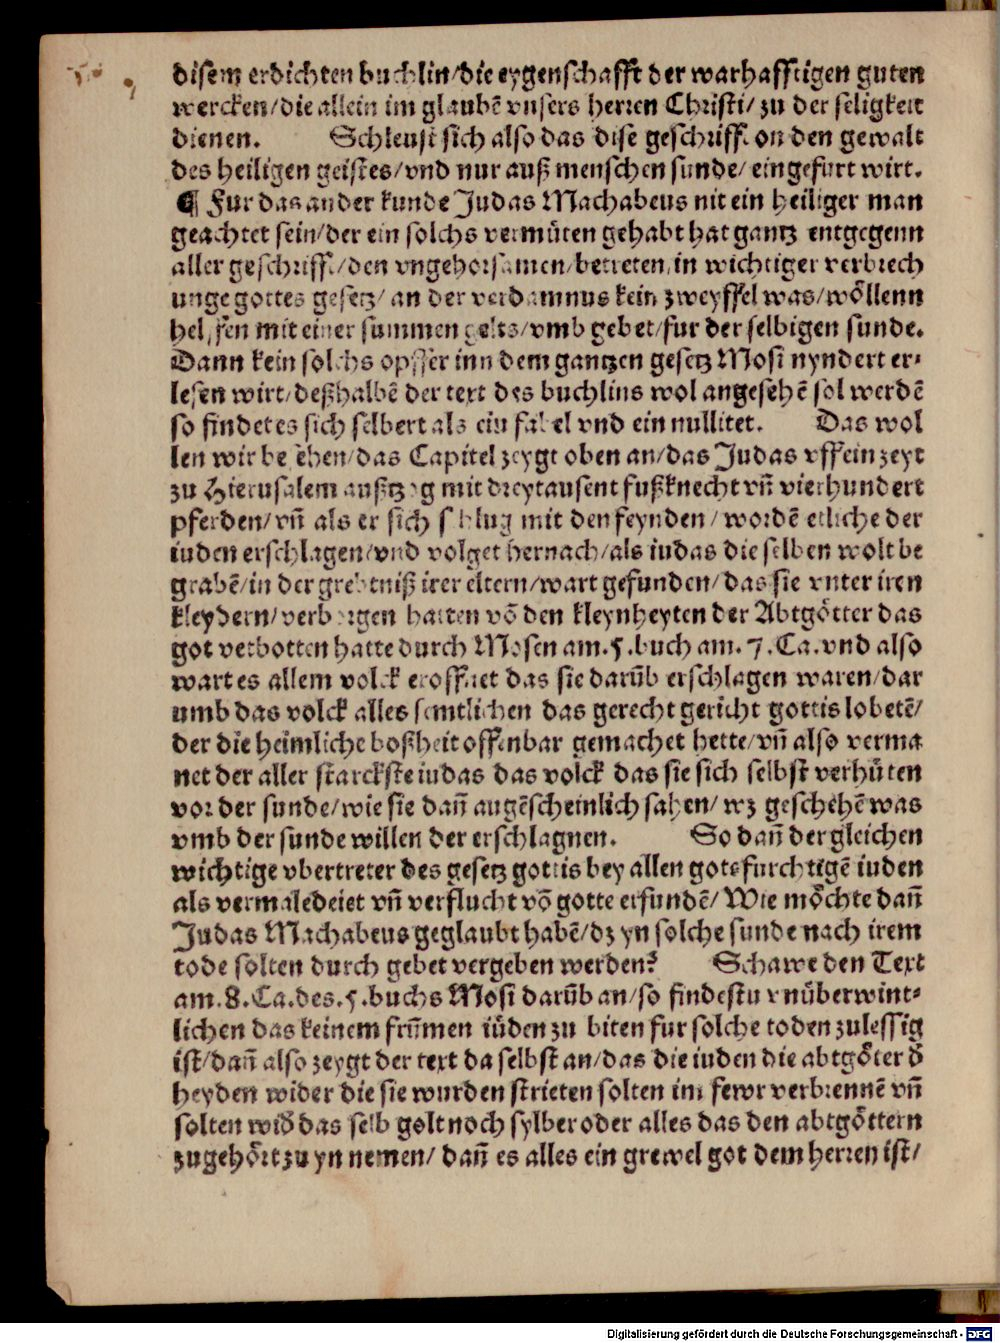 disem erdichten buchlin/die eygenschafft der warhafftigen guten
wercken/die allein im glaubē vnsers herren Christi/ zu der seligkeit
dienen. Schleust sich also das dise geschrifft on den gewalt
des heiligen geistes/vnd nur auß menschen sunde/ eingefurt wirt.
¶ Fur das ander kunde Judas Machabeus nit ein heiliger man
geachtet sein/der ein solchs vermüten gehabt hat gantz entgegenn
aller geschrifft/den vngehorsamen/betreten/in wichtiger verbrech
unge gottes gesetz/ an der verdamnus kein zweyffel was/wöllenn
helffen mit einer summen gelts/vmb gebet/fur der selbigen sunde.
Dann kein solchs opffer inn dem gantzen gesetz Mosi nyndert er-
lesen wirt/deßhalbē der text des buchlins wol angesehē sol werdē
so findet es sich selbert als ein fabel vnd ein nullitet. Das wol
len wir besehen/das Capitel zeygt oben an/das Judas vff ein zeyt
zu Hierusalem außtzog mit dreytausent fußknecht vn̄ vierhundert
pferden/vn̄ als er sich schlug mit den feynden/wordē etliche der
iuden erschlagen/vnd volget hernach/als iudas die selben wolt be
grabē/in der grebtniß irer eltern/wart gefunden/das sie vnter iren
kleydern/verborgen hatten vō den kleynheyten der Abtgötter das
got verbotten hatte durch Mosen am.5.buch am.7.Ca.vnd also
wart es allem volck eroffnet das sie darūb erschlagen waren/dar
umb das volck alles semtlichen das gerecht gericht gottis lobetē/
der die heimliche boßheit offenbar gemachet hette/vn̄ also verma
net der aller starckste iudas das volck das sie sich selbst verhüten
vor der sunde/wie sie dan̄ augēscheinlich sahen/ wz geschehē was
vmb der sunde willen der erschlagnen. So dan̄ der gleichen
wichtige vbertreter des gesetz gottis bey allen gotsfurchtigē iuden
als vermaledeiet vn̄ verflucht vō gotte erfundē/ Wie möchte dan̄
Judas Machabeus geglaubt habē/dz yn solche sunde nach irem
tode solten durch gebet vergeben werden? Schawe den Text
am.8.Ca.des.5.buchs Mosi darūb an/so findestu vnüberwint-
lichen das keinem frūmen iüden zu biten fur solche toden zulessig
ist/dan̄ also zeygt der text da selbst an/das die iuden die abtgöter d̄
heyden wider die sie wurden strieten solten im fewr verbrennē vn̄
solten wid̄ das selb golt noch sylber oder alles das den abtgöttern
zugehört zu yn nemen/ dan̄ es alles ein grewel got dem herren ist/
Digitalisierung gefördert durch die Deutsche Forschungsgemeinschaft - DFG